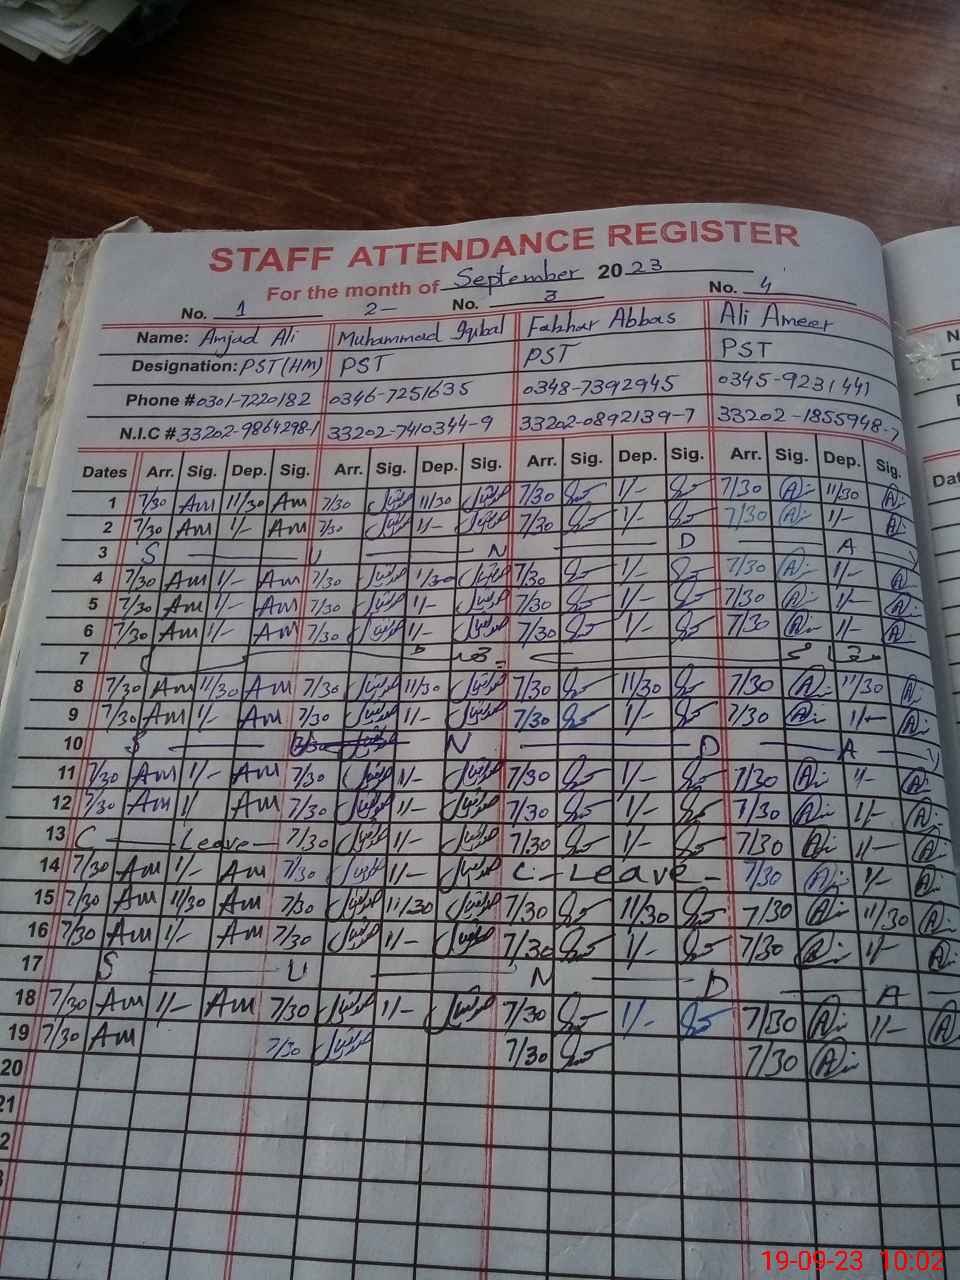 STAFF ATTENDANCE REGISTER
For the month of September 2023
No. 1 2- No. 3 No. 4
Name: Amjad Ali Muhammad Iqbal Fakhar Abbas Ali Ameer
Designation: PST (HM) PST PST PST
Phone # 0301-7220182 0346-7251635 0348-7392945 0345-9231441
N.I.C # 33202-9864298-1 33202-7410344-9 33202-0892139-7 33202-1855948-7
Dates Arr. Sig. Dep. Sig. Arr. Sig. Dep. Sig. Arr. Sig. Dep. Sig. Arr. Sig. Dep. Sig.
1 7/30 Am 11/30 Am 7/30 11/30 7/30 1/- 7/30 11/30
2 7/30 Am 1/- Am 7/30 1/- 7/30 1/- 7/30 1/-
3 S U N D A
4 7/30 Am 1/- Am 7/30 1/30 7/30 1/- 7/30 1/-
5 7/30 Am 1/- Am 7/30 1/- 7/30 1/- 7/30 1/-
6 7/30 Am 1/- Am 7/30 1/- 7/30 1/- 7/30 1/-
7
8 7/30 Am 11/30 Am 7/30 11/30 7/30 11/30 7/30 11/30
9 7/30 Am 1/- Am 7/30 1/- 7/30 1/- 7/30 1/-
10 S N D A
11 7/30 Am 1/- Am 7/30 1/- 7/30 1/- 7/30 1/-
12 7/30 Am 1/ Am 7/30 1/- 7/30 1/- 7/30 1/-
13 C Leave 7/30 1/- 7/30 1/- 7/30 1/-
14 7/30 Am 1/- Am 7/30 1/- C - Leave - 7/30 1/-
15 7/30 Am 11/30 Am 7/30 11/30 7/30 11/30 7/30 11/30
16 7/30 Am 1/- Am 7/30 1/- 7/30 1/- 7/30 1/-
17 S U N D A
18 7/30 Am 1/- Am 7/30 1/- 7/30 1/- 7/30 1/-
19 7/30 Am 7/30 7/30 7/30
20
21
2
19-09-23 10:02